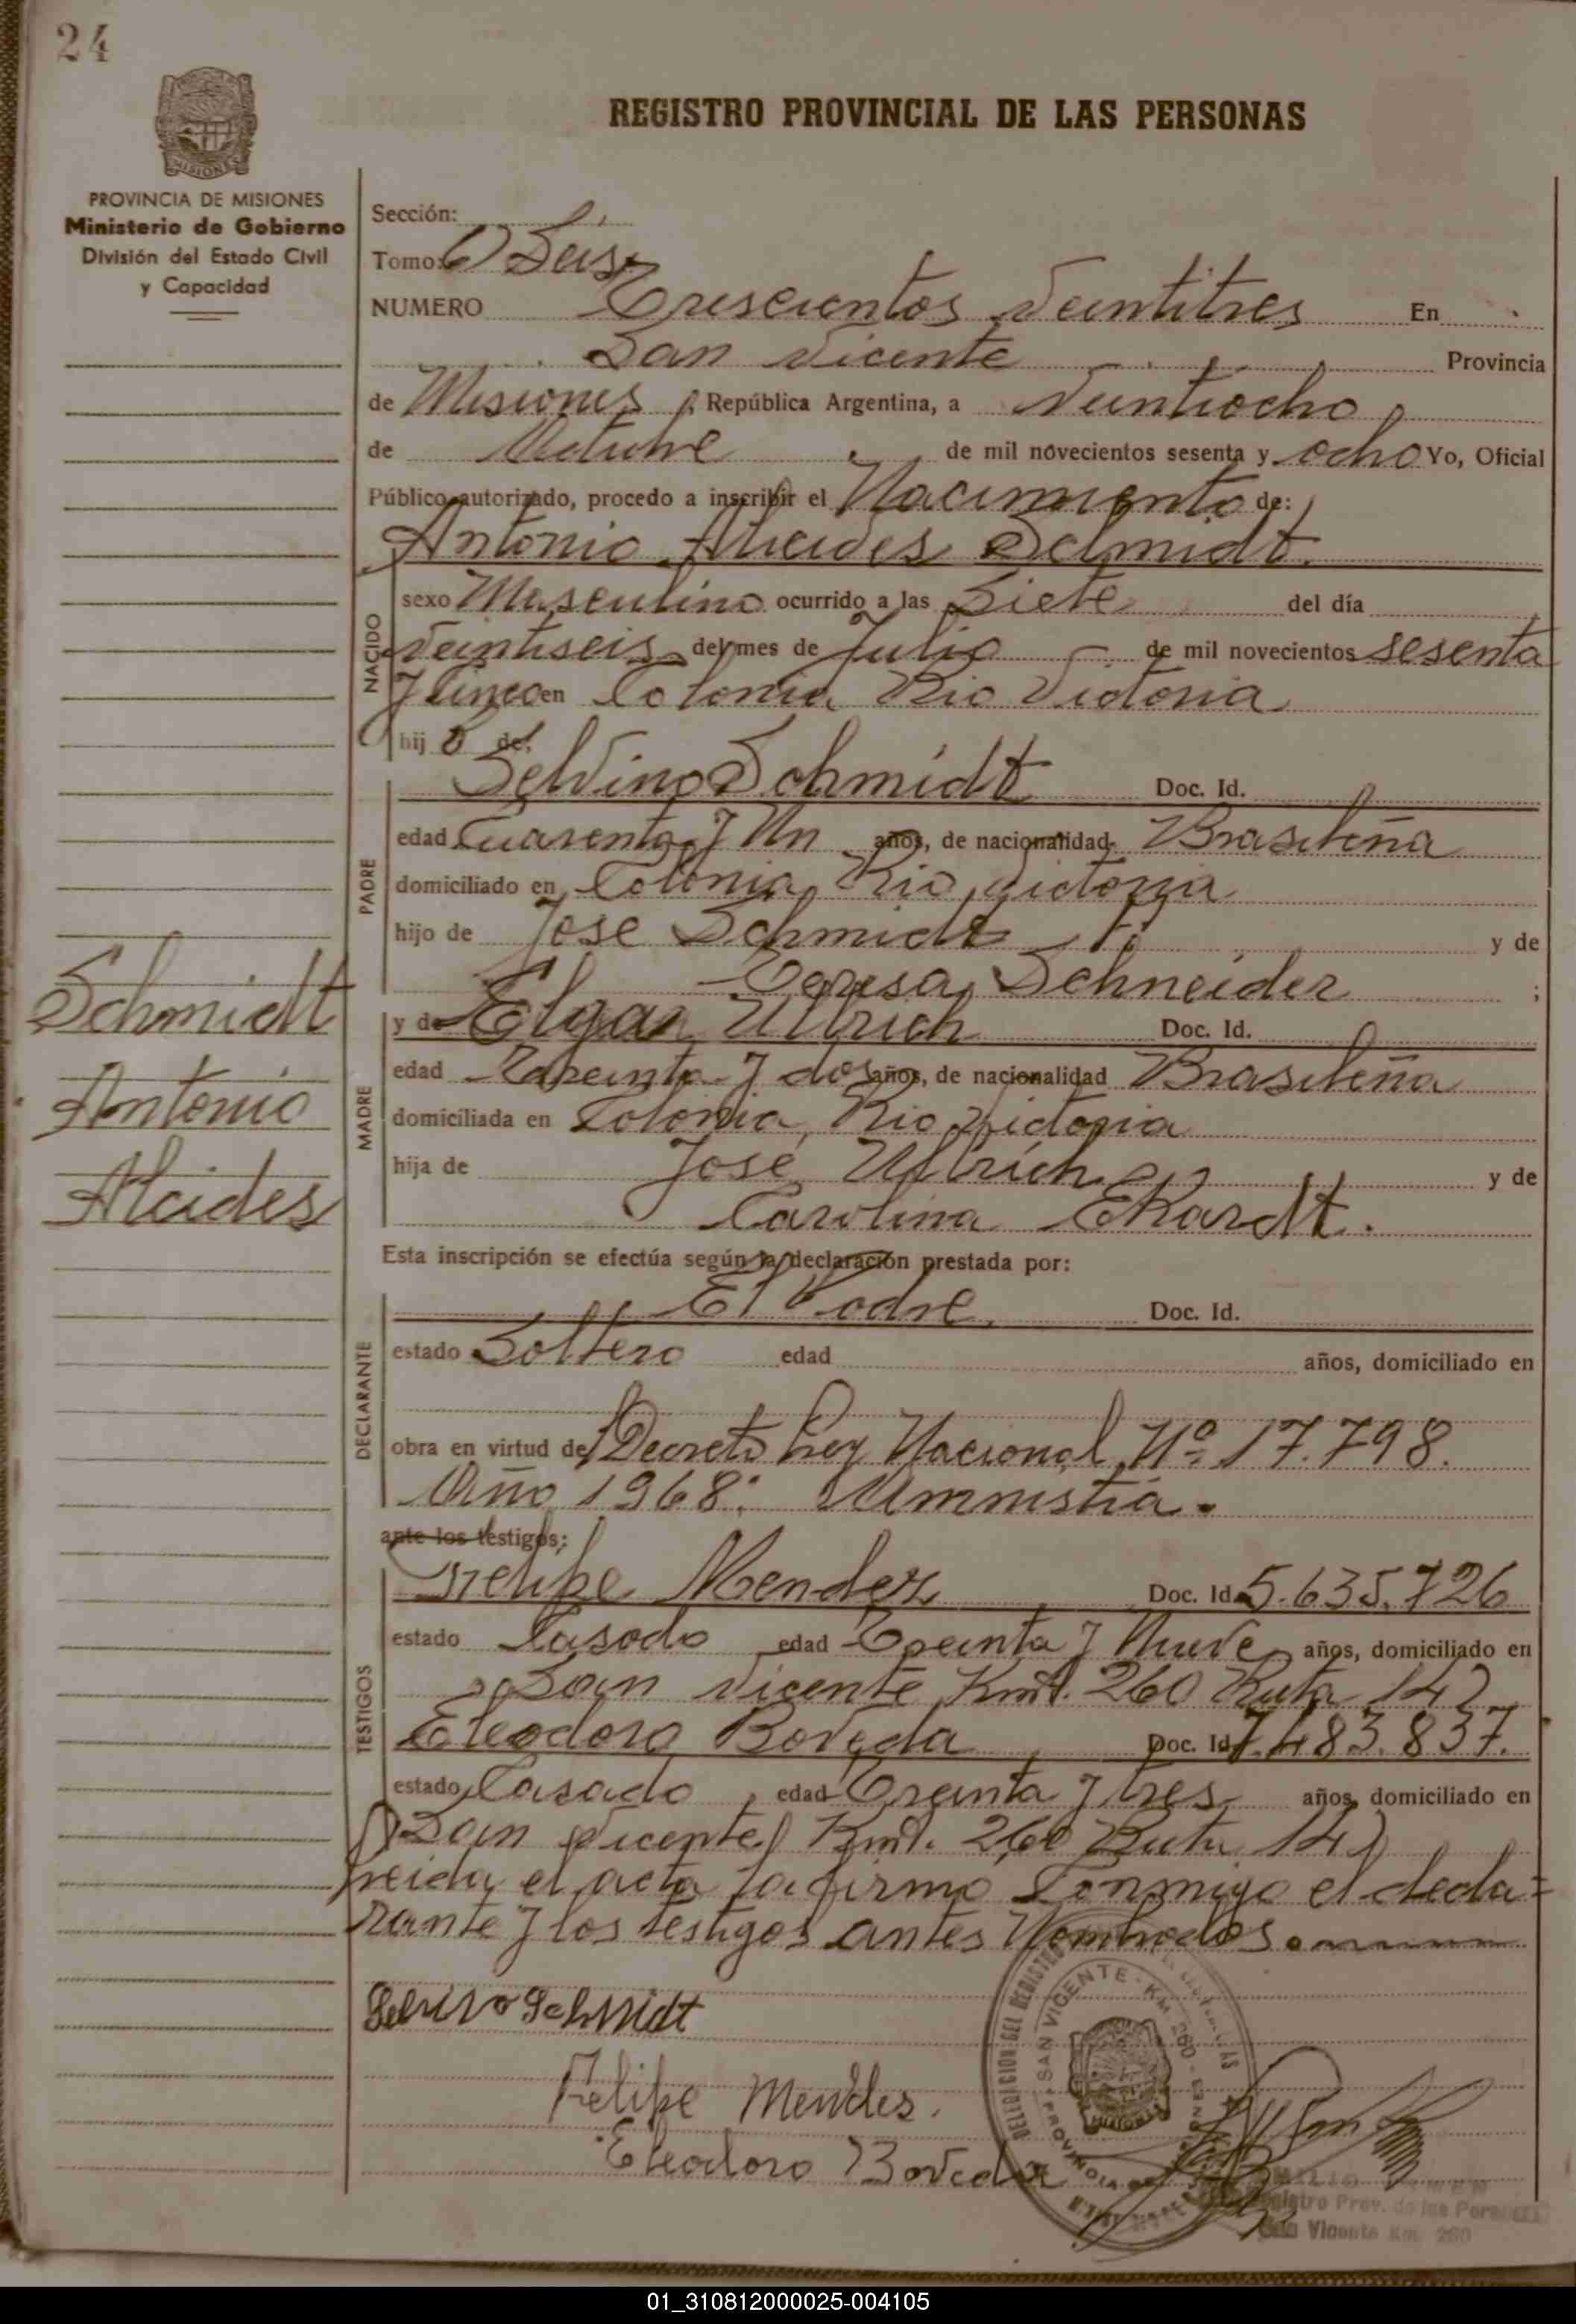 24
REGISTRO PROVINCIAL DE LAS PERSONAS
MISIONES
PROVINCIA DE MISIONES
Ministerio de Gobierno
División del Estado Civil
y Capacidad
Sección:
Tomo: 6) Seis
NUMERO Trescientos Veintitres En
San Vicente Provincia
de Misiones República Argentina, a Veintiocho
de Octubre de mil novecientos sesenta y ocho Yo, Oficial
Público autorizado, procedo a inscribir el Nacimiento de:
Antonio Alcides Schmidt
NACIDO
sexo Masculino ocurrido a las Siete del día
Veintiseis del mes de Julio de mil novecientos sesenta
y Cinco en Colonia Rio Victoria
hijo de:
Selvino Schmidt Doc. Id.
PADRE
edad Cuarenta y Un años, de nacionalidad Brasileña
domiciliado en Colonia Rio Victoria
hijo de Jose Schmidt y de
Teresa Schneider ;
y de Elga Ullrich Doc. Id.
MADRE
edad Treinta y dos años, de nacionalidad Brasileña
domiciliada en Colonia Rio Victoria
hija de José Ullrich y de
Carolina Ekardt.
Schmidt
Antonio
Alcides
Esta inscripción se efectúa según la declaración prestada por:
El Padre Doc. Id.
DECLARANTE
estado Soltero edad años, domiciliado en
obra en virtud de Decreto Ley Nacional Nº 17.798.
Año 1968: Amnistia.
ante los testigos:
Felipe Mendez Doc. Id. 5.635.726
TESTIGOS
estado Casado edad Treinta y Nueve años, domiciliado en
San Vicente Kmt. 260 Ruta 14)
Eleodoro Boveda Doc. Id. 7.483.837.
estado Casado edad Treinta y tres años, domiciliado en
San Vicente Kmt. 260 Ruta 14)
Leida el acta la firmo Conmigo el decla=
rante y los testigos antes Nombrados.
Selvino Schmidt
Felipe Mendes.
Eleodoro Boveda
SAN VICENTE - KM 260
Registro Prov. de las Personas
San Vicente Km. 260
01_310812000025-004105